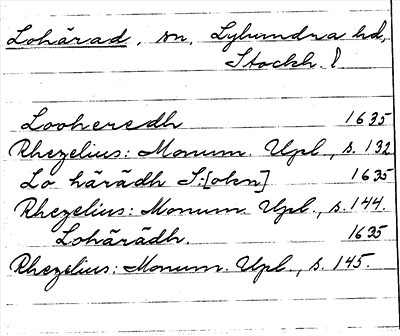 Lohärad, sn, Lyhundra hd,
Stockh. l
Looheredh 1635
Rhezelius: Monum. Upl., s. 132
Lo härädh S:[okn] 1635
Rhezelius: Monum. Upl., s. 144.
Lohärädh. 1635
Rhezelius: Monum. Upl., s. 145.